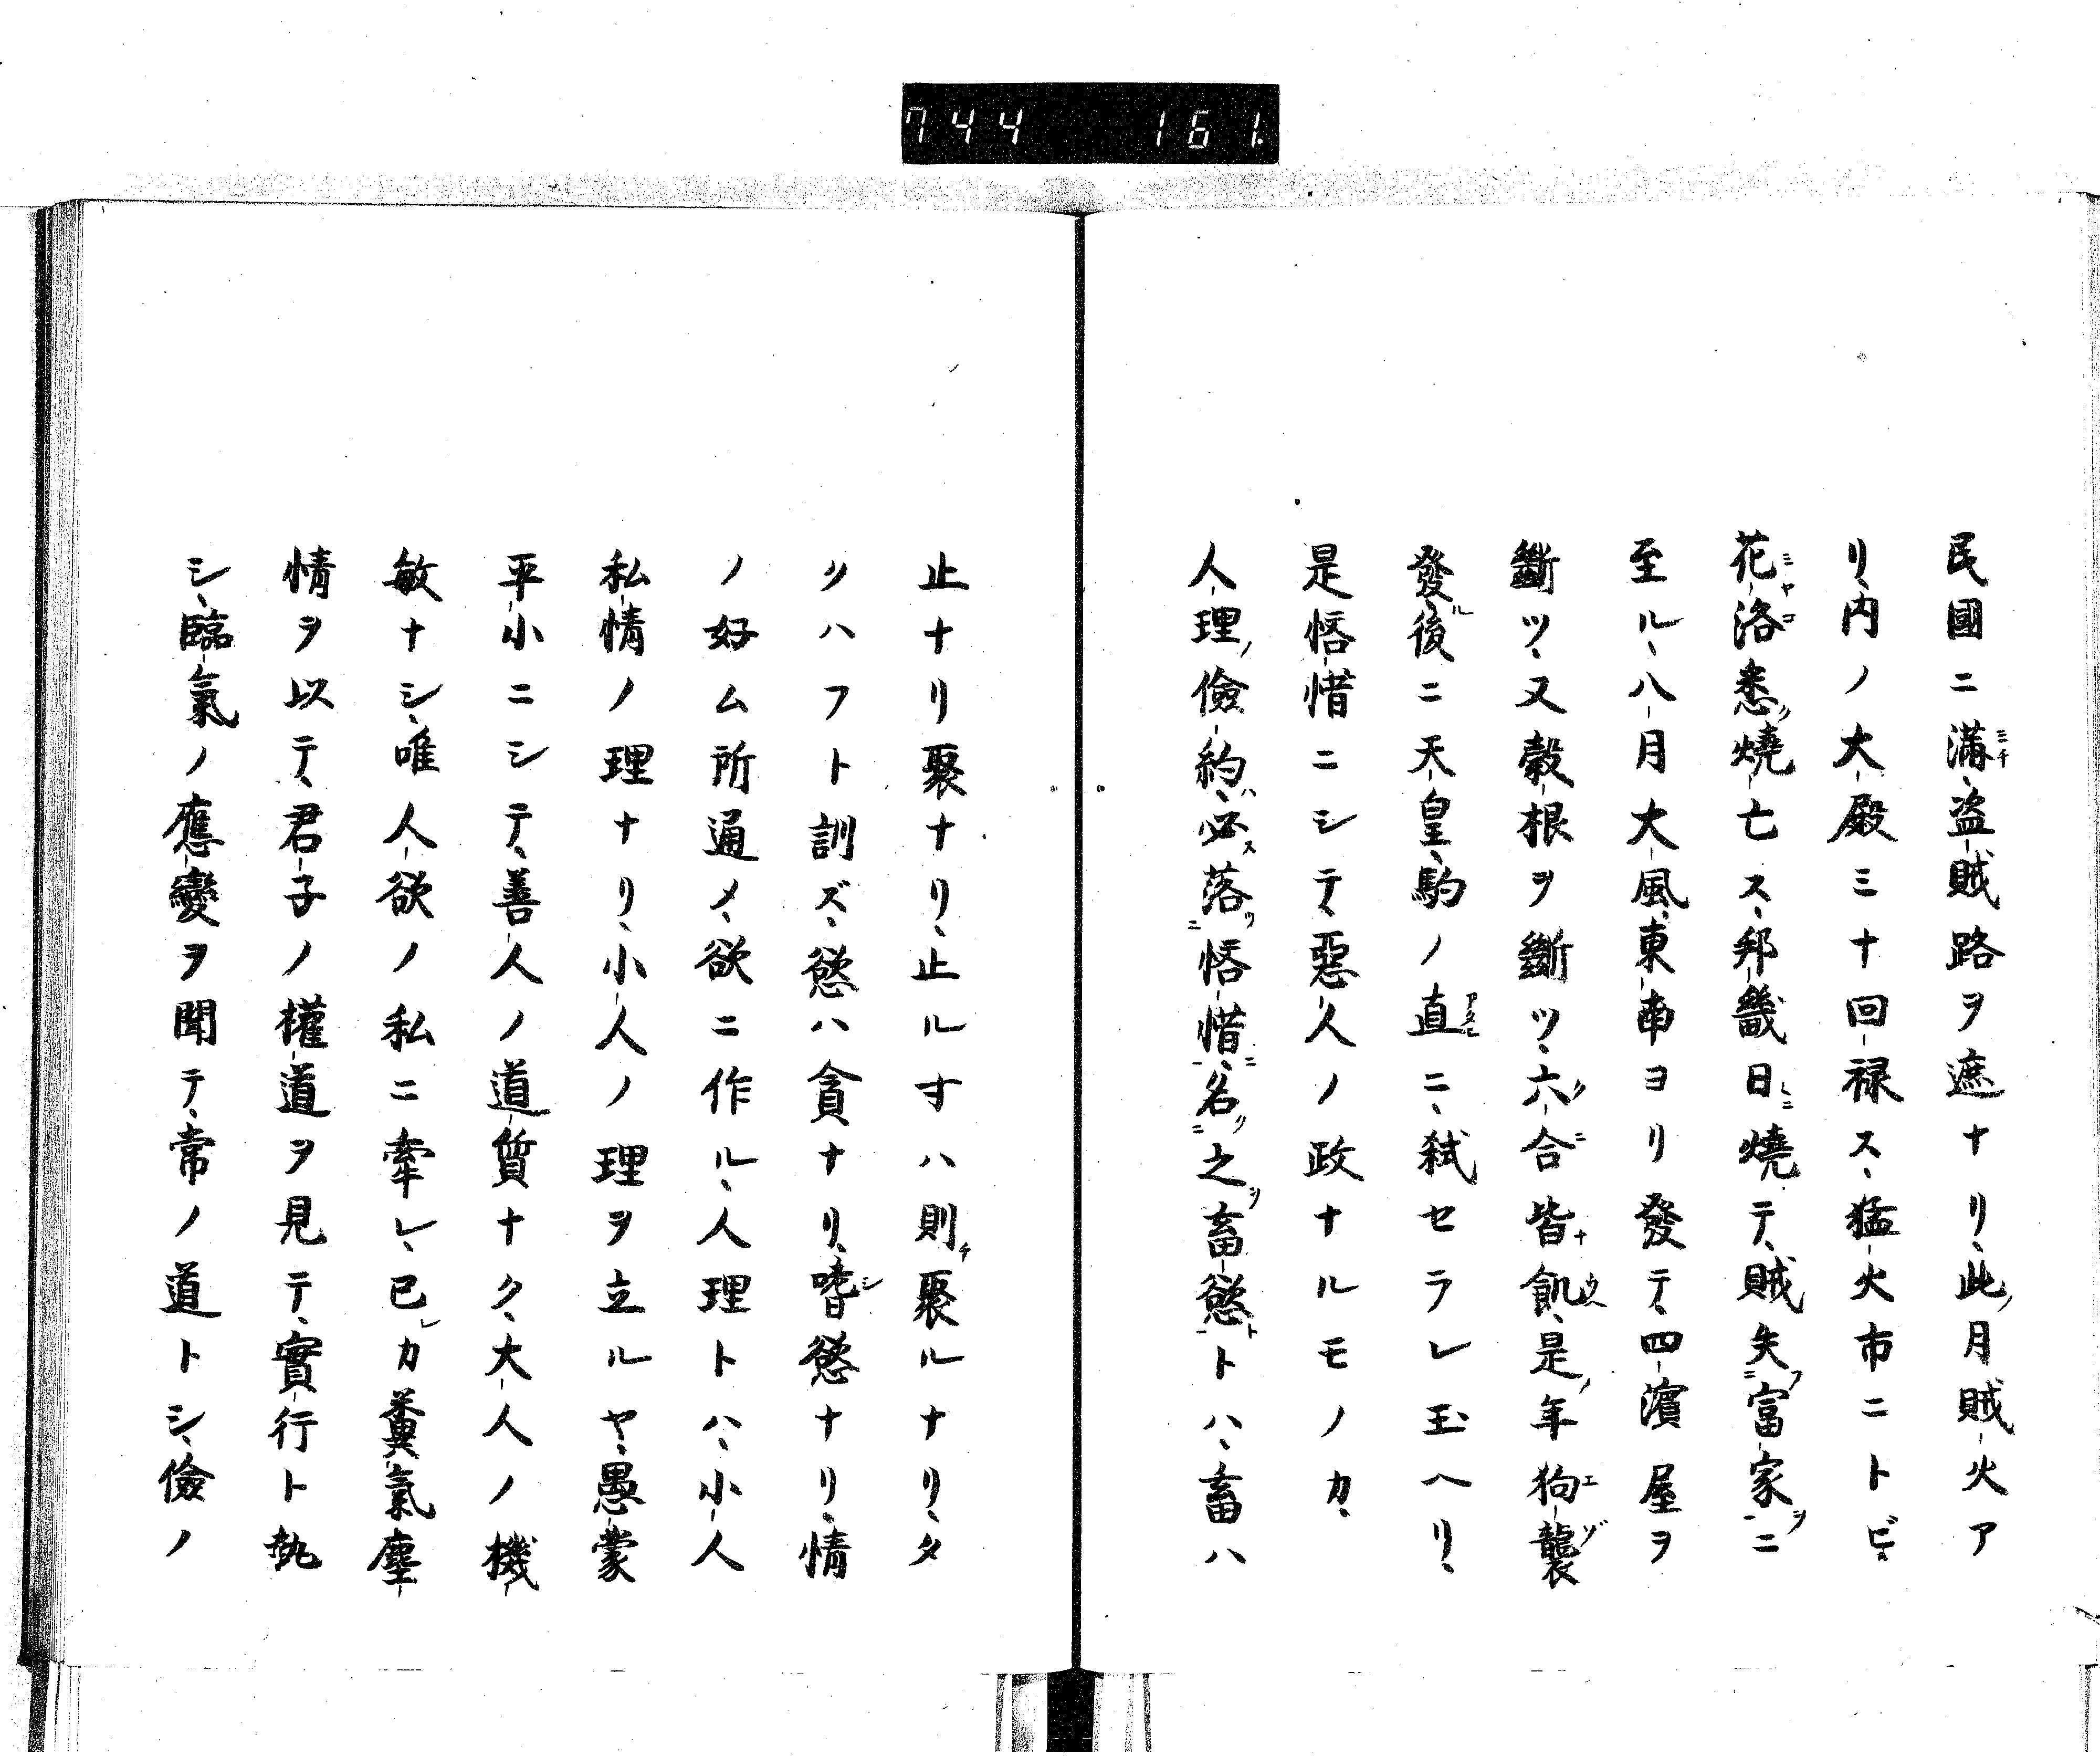 744 161.
民國ニ滿、盗賊路ヲ遮ナリ、此月賊火ア
リ、内ノ大殿ミナ回禄ス、猛火市ニトビ、
花洛悉燒亡ス、邦畿日燒テ、賊矢富家ニ
至ル、八月大風、東南ヨリ發テ、四濱屋ヲ
斷ツ、又穀根ヲ斷ツ、六合皆飢、是年狗襲
發、後ニ天皇、駒ノ直ニ、弑セラレ玉ヘリ、
是悋惜ニシテ、惡人ノ政ナルモノカ、
人理儉約、必落悋惜、名之畜慾トハ、畜ハ
止ナリ聚ナリ、止ルヿハ則聚ルナリ、タ
リハフト訓ズ、慾ハ貪ナリ、嗜慾ナリ、情
ノ好ム所通メ、欲ニ作ル、人理トハ、小人
私情ノ理ナリ、小人ノ理ヲ立ルヤ、愚蒙
平小ニシテ、善人ノ道質ナク、大人ノ機
敏ナシ、唯人欲ノ私ニ牽レ、已カ糞氣塵
情ヲ以テ、君子ノ權道ヲ見テ、實行ト執
シ、臨氣ノ應變ヲ聞テ、常ノ道トシ、儉ノ